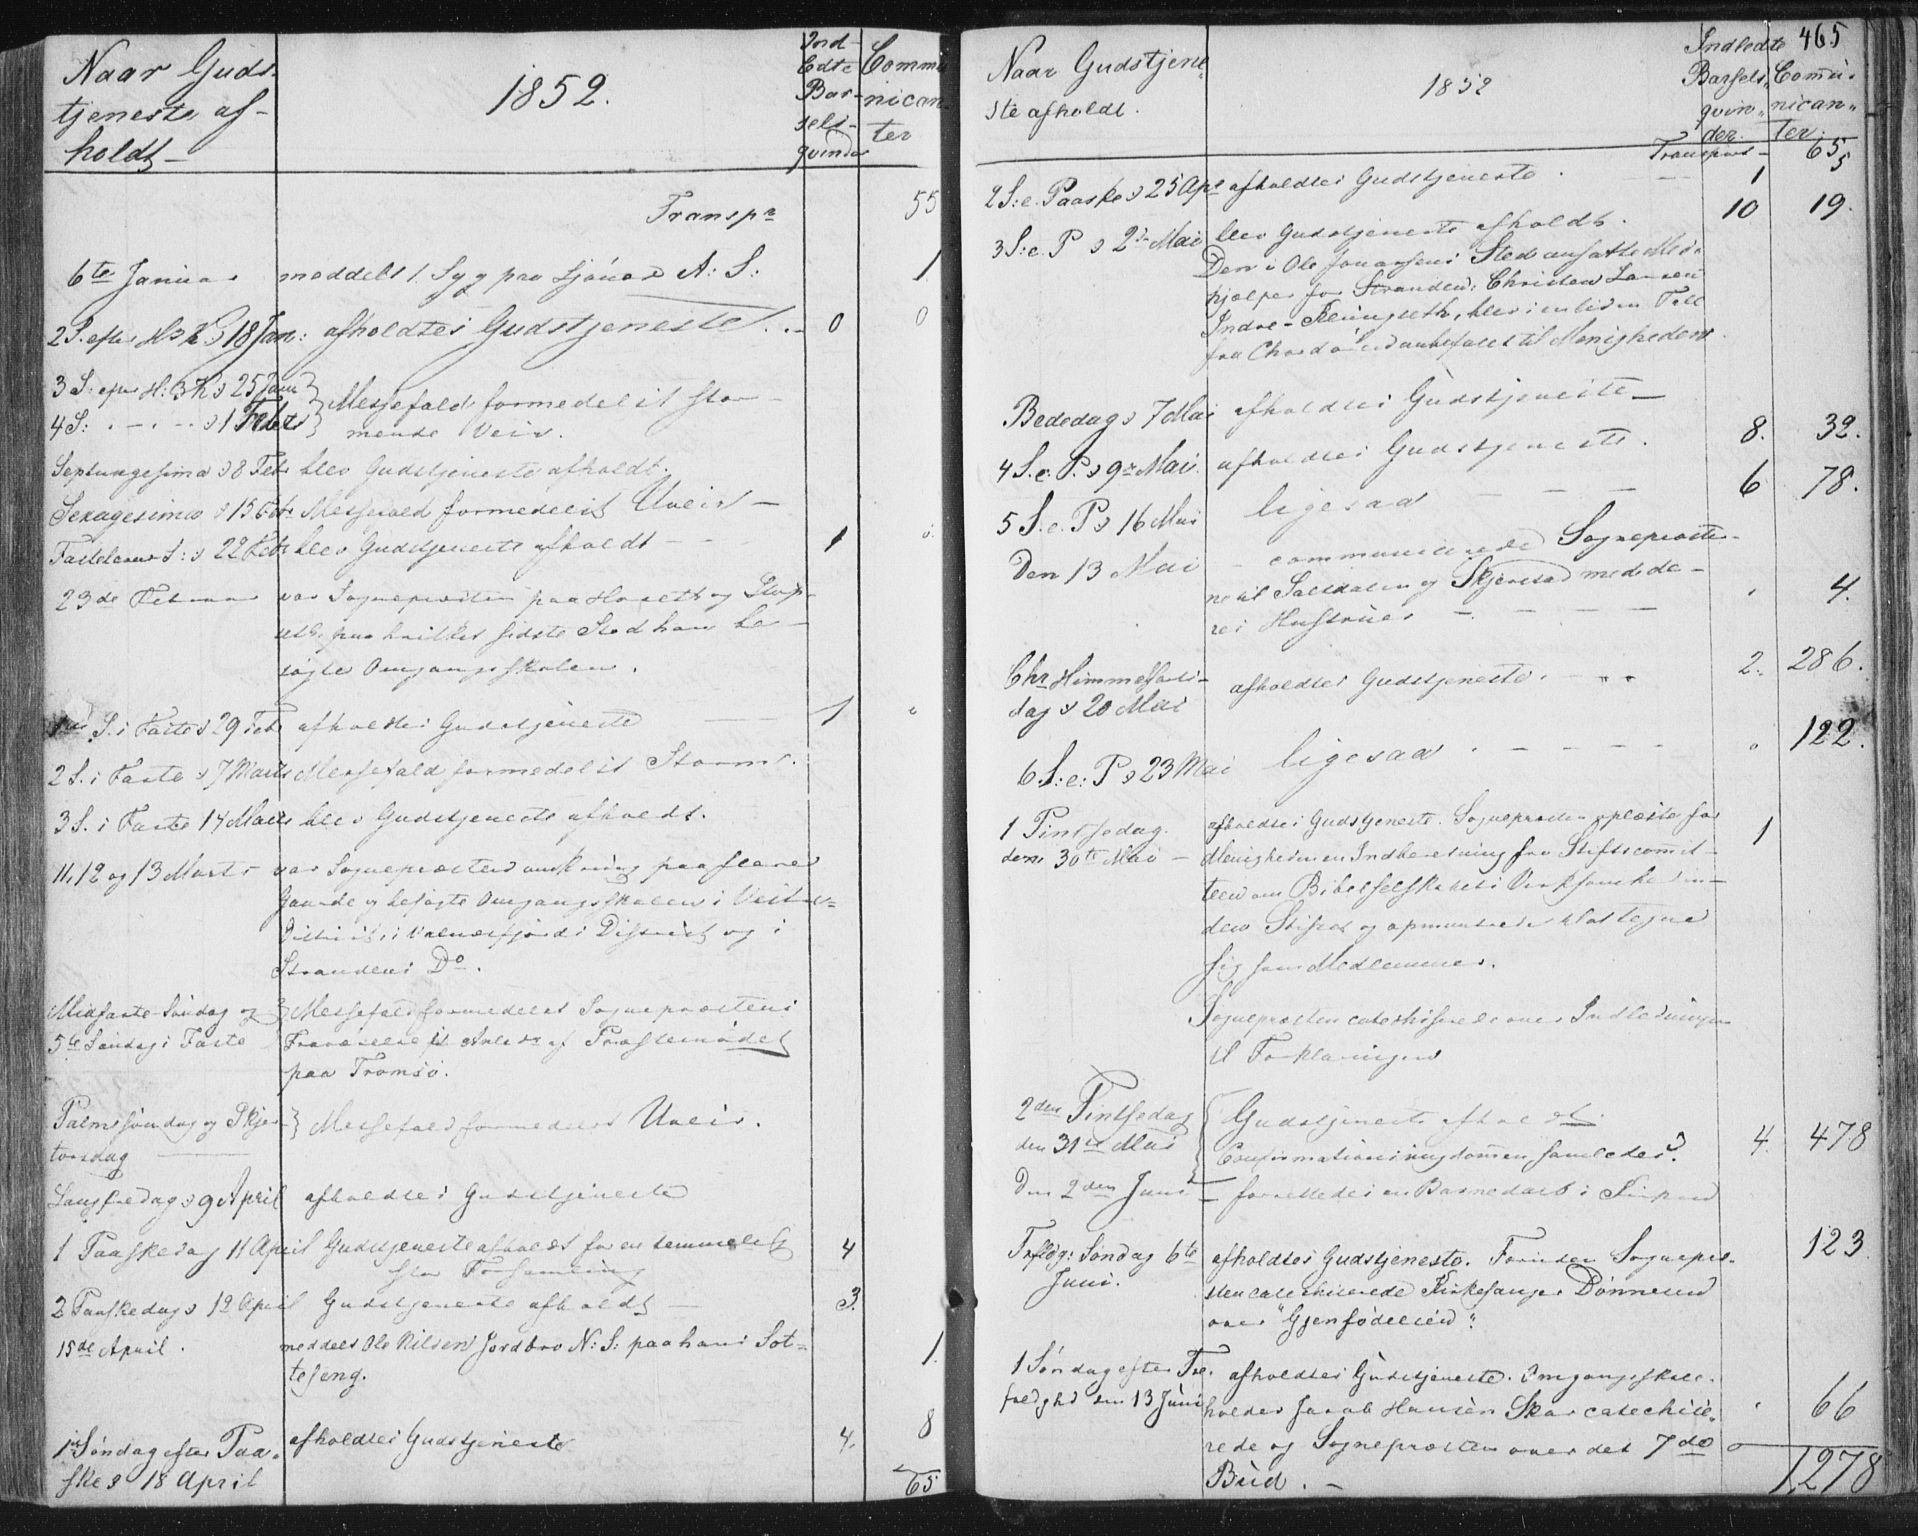 Naar Guds-
tjeneste af-
holdt
1852.
Ind-
ledte
Bar-
sels-
qvinder
Commu
nican-
ter
Transpr 55
6te Januar meddelt 1 Syg paa A: S: 1
2 S. efter H3K 18 Jan: afholdtes Gudstjeneste . . - 0 0
3 S: efter H: 3 K 25 Janr
4 S: . - . - 1 Febr Messefald formedelst stor-
mende Veir.
Septuagesima 8 Febr blev Gudstjeneste afholdt.
Sexagesima 15 Febr Messefald formedelst Uveir -
Fastelavns S: 22 Febr blev Gudstjeneste afholdt - - 1
23de Februar var Sognepræsten paa og
paa hvilket sidste Sted han be-
søgte Omgangsskolen.
1ste S. i Faste 29 Febr afholdtes Gudstjeneste 1
2 S. i Faste 7 Marts Messefald formedelst Storm.
3 S. i Faste 14 Marts blev Gudstjeneste afholdt.
11, 12 og 13 Marts var Sognepræsten omkring paa flere
Gaarde og besøgte Omgangsskolen i
District, i Valnæsfjords District og i
Strandens Do.
Midfaste Søndag og Messefald formedelst Sognepræstens
5te Søndag i Faste Fraværelse i Anledn af Præstemødet
paa Tromsø.
Palmesøndag og Skjær-
torsdag Messefald formedelst Uveir.
Langfredag 9 April afholdtes Gudstjeneste
1 Paaskedag 11 April Gudstjeneste afholdt for en temmelig 4
stor Forsamling
2 Paaskedag 12 April Gudstjeneste afholdt - 3.
15de April. meddelt Ole Nilsen Jordbro N: S: paa hans Sot- 1.
teseng.
1ste Søndag efter Paa-
ske 18 April afholdtes Gudstjeneste 4. 8
65
465
Naar Gudstjene-
ste afholdt.
1852
Indledte
Barsels-
qvin-
der.
Comu-
nican-
ter.
Transport - 65
2 S: e. Paaske 25 Apr afholdtes Gudstjeneste . 1 5
3 S: e. P 2den Mai blev Gudstjeneste afholdt. 10 19.
Den i Ole Sted ansatte Med-
hjælper for Stranden, Christen Larsen
Indre-, blev i en liden Tale
fra Chordøren anbefalet til Menigheden.
Bededag 7 Mai afholdtes Gudstjeneste -
4 S. e. P. 9de Mai. afholdtes Gudstjeneste. 8. 32.
5 S. e. P 16 Mai ligesaa - - - 6 78.
Den 13 Mai - communicerede Sognepræste-
ne til Saltdalen og Skjerstad med de-
res Hustruer - - - 4.
Chr Himmelfarts-
dag 20 Mai afholdtes Gudstjeneste. 2. 286.
6 S: e: P 23 Mai ligesaa . - - - 122.
1 Pintsedag.
den 30te Mai - afholdtes Gudstjeneste. Sognepræsten oplæste for 1
Menigheden en Indberetning fra Stiftscomit-
teen om Bibelselskabets Virksomhed in-
den Stiftet og opmuntrede til at tegne
sig som Medlemmer.
Sognepræsten catechiserede over Indledningen
til Forklaringen
2den Pintsedag
den 31te Mai Gudstjeneste afholdt.
Confirmationsungdommen samledes. 4. 478
Den 2den Juni - forrettedes en Barnedaab i
Trefldg: Søndag 6te
Juni. afholdtes Gudstjeneste. Forinden Sognepræ- 123
sten catechiserede Kirkesanger Dønnesen
over "Gjenfødelsen".
1 Søndag efter Tre-
foldghd den 13 Juni afholdtes Gudstjeneste. Omgangsskole-
holder Jacob Hansen Skar catechise- 66
rede og Sognepræsten over det 7de
Bud. - 1278